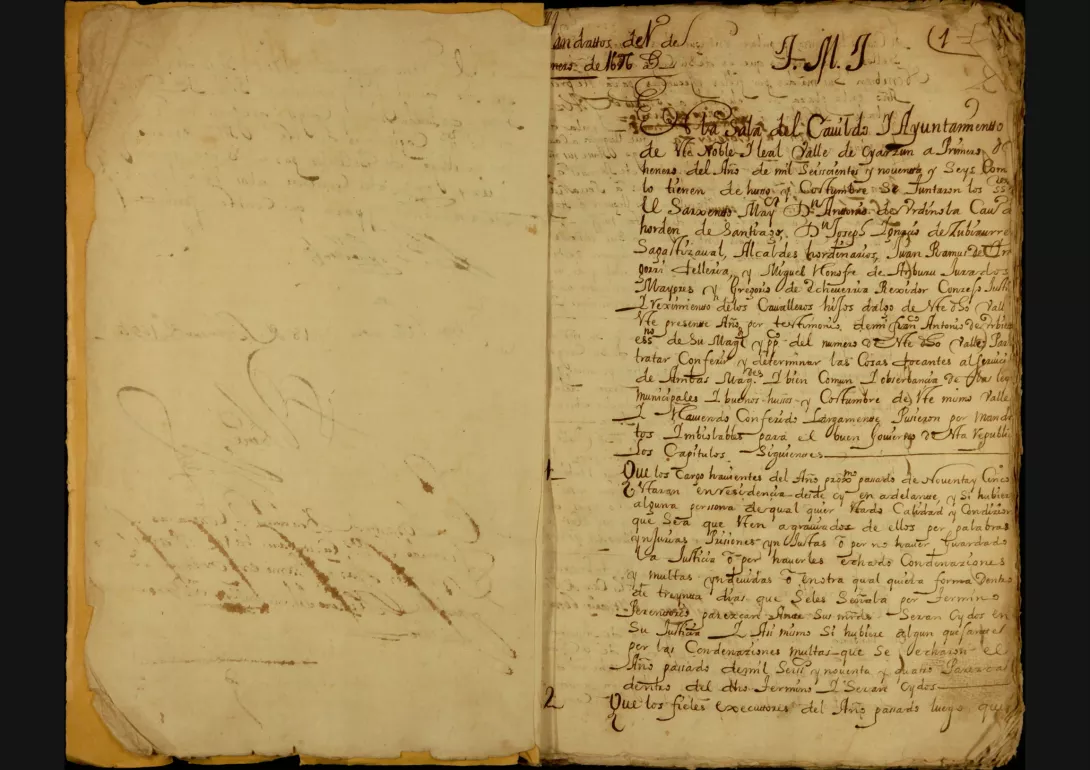 Mandattos del 1 de
henero de 1696
J. M. J
1
En la Sala del Cauildo I Ayuntamiento
de Vte Noble I leal Valle de Oyarzun a Primero de
henero del Año de mil Seiscientos y nouenta y Seys Com
lo tienen de husso y Costumbre Se Juntaron los SSres
El Sarxento Mayor Dn Antonio de Vrdinola Cauo de
horden de Santiago, Dn Joseph Ignaçio de Zubiaurre
Sagastizaual, Alcaldes hordinarios, Juan Ramus de
telleria, y Miguel Honofre de Aryburu Jurados
Mayores y Gregorio de Echeuerria Rexidor Conzejo Justiz
I reximiento delos Caualleros hijos dalgo de Vte dho Valle
Vte presente Año, por testimonio, demi Juan Antonio de
essno de Su Magd y pp del numero de Vte dho Valle Para
tratar Conferir y determinar las Cosas tocantes al seruici
de Ambas Magdes I bien Comun I obserbancia de las ley
municipales I buenos husos y Costumbre de Vte mismo Valle
I Hauiendo Conferido Largamente Pusieron por Manda
tos Imbiolables para el buen Gouierno de Vta Republi
Los Capitulos Siguientes
1 Que los Cargo hauientes del Año proxmo passado de Nouenta y Cinco
Vtaran en residencia desde oy en adelante, y Si hubiere
alguna persona de qual quier Vtado Calidad y Condizion
que Sea que Vten agrauiados de ellos por palabras
ynjurias Prisiones yn Justas o por no hauer Guardado
La Justicia o por hauerles echado Condenaziones
y multas yndeuidas o en otra qual quiera forma Dentro
de treynta dias que Seles Señala por Termino
Perentorio parezcan Ante Sus mrds Seran Oydos en
Su Justicia I Asi mismo Si hubiere algun quejante
por las Condenaziones multas que Se echaron el
Año passado de mil Seisos y nouenta y quatro Parezcan
dentro del dho Termino I Seran Oydos
2 Que los fieles executores del Año passado luego que